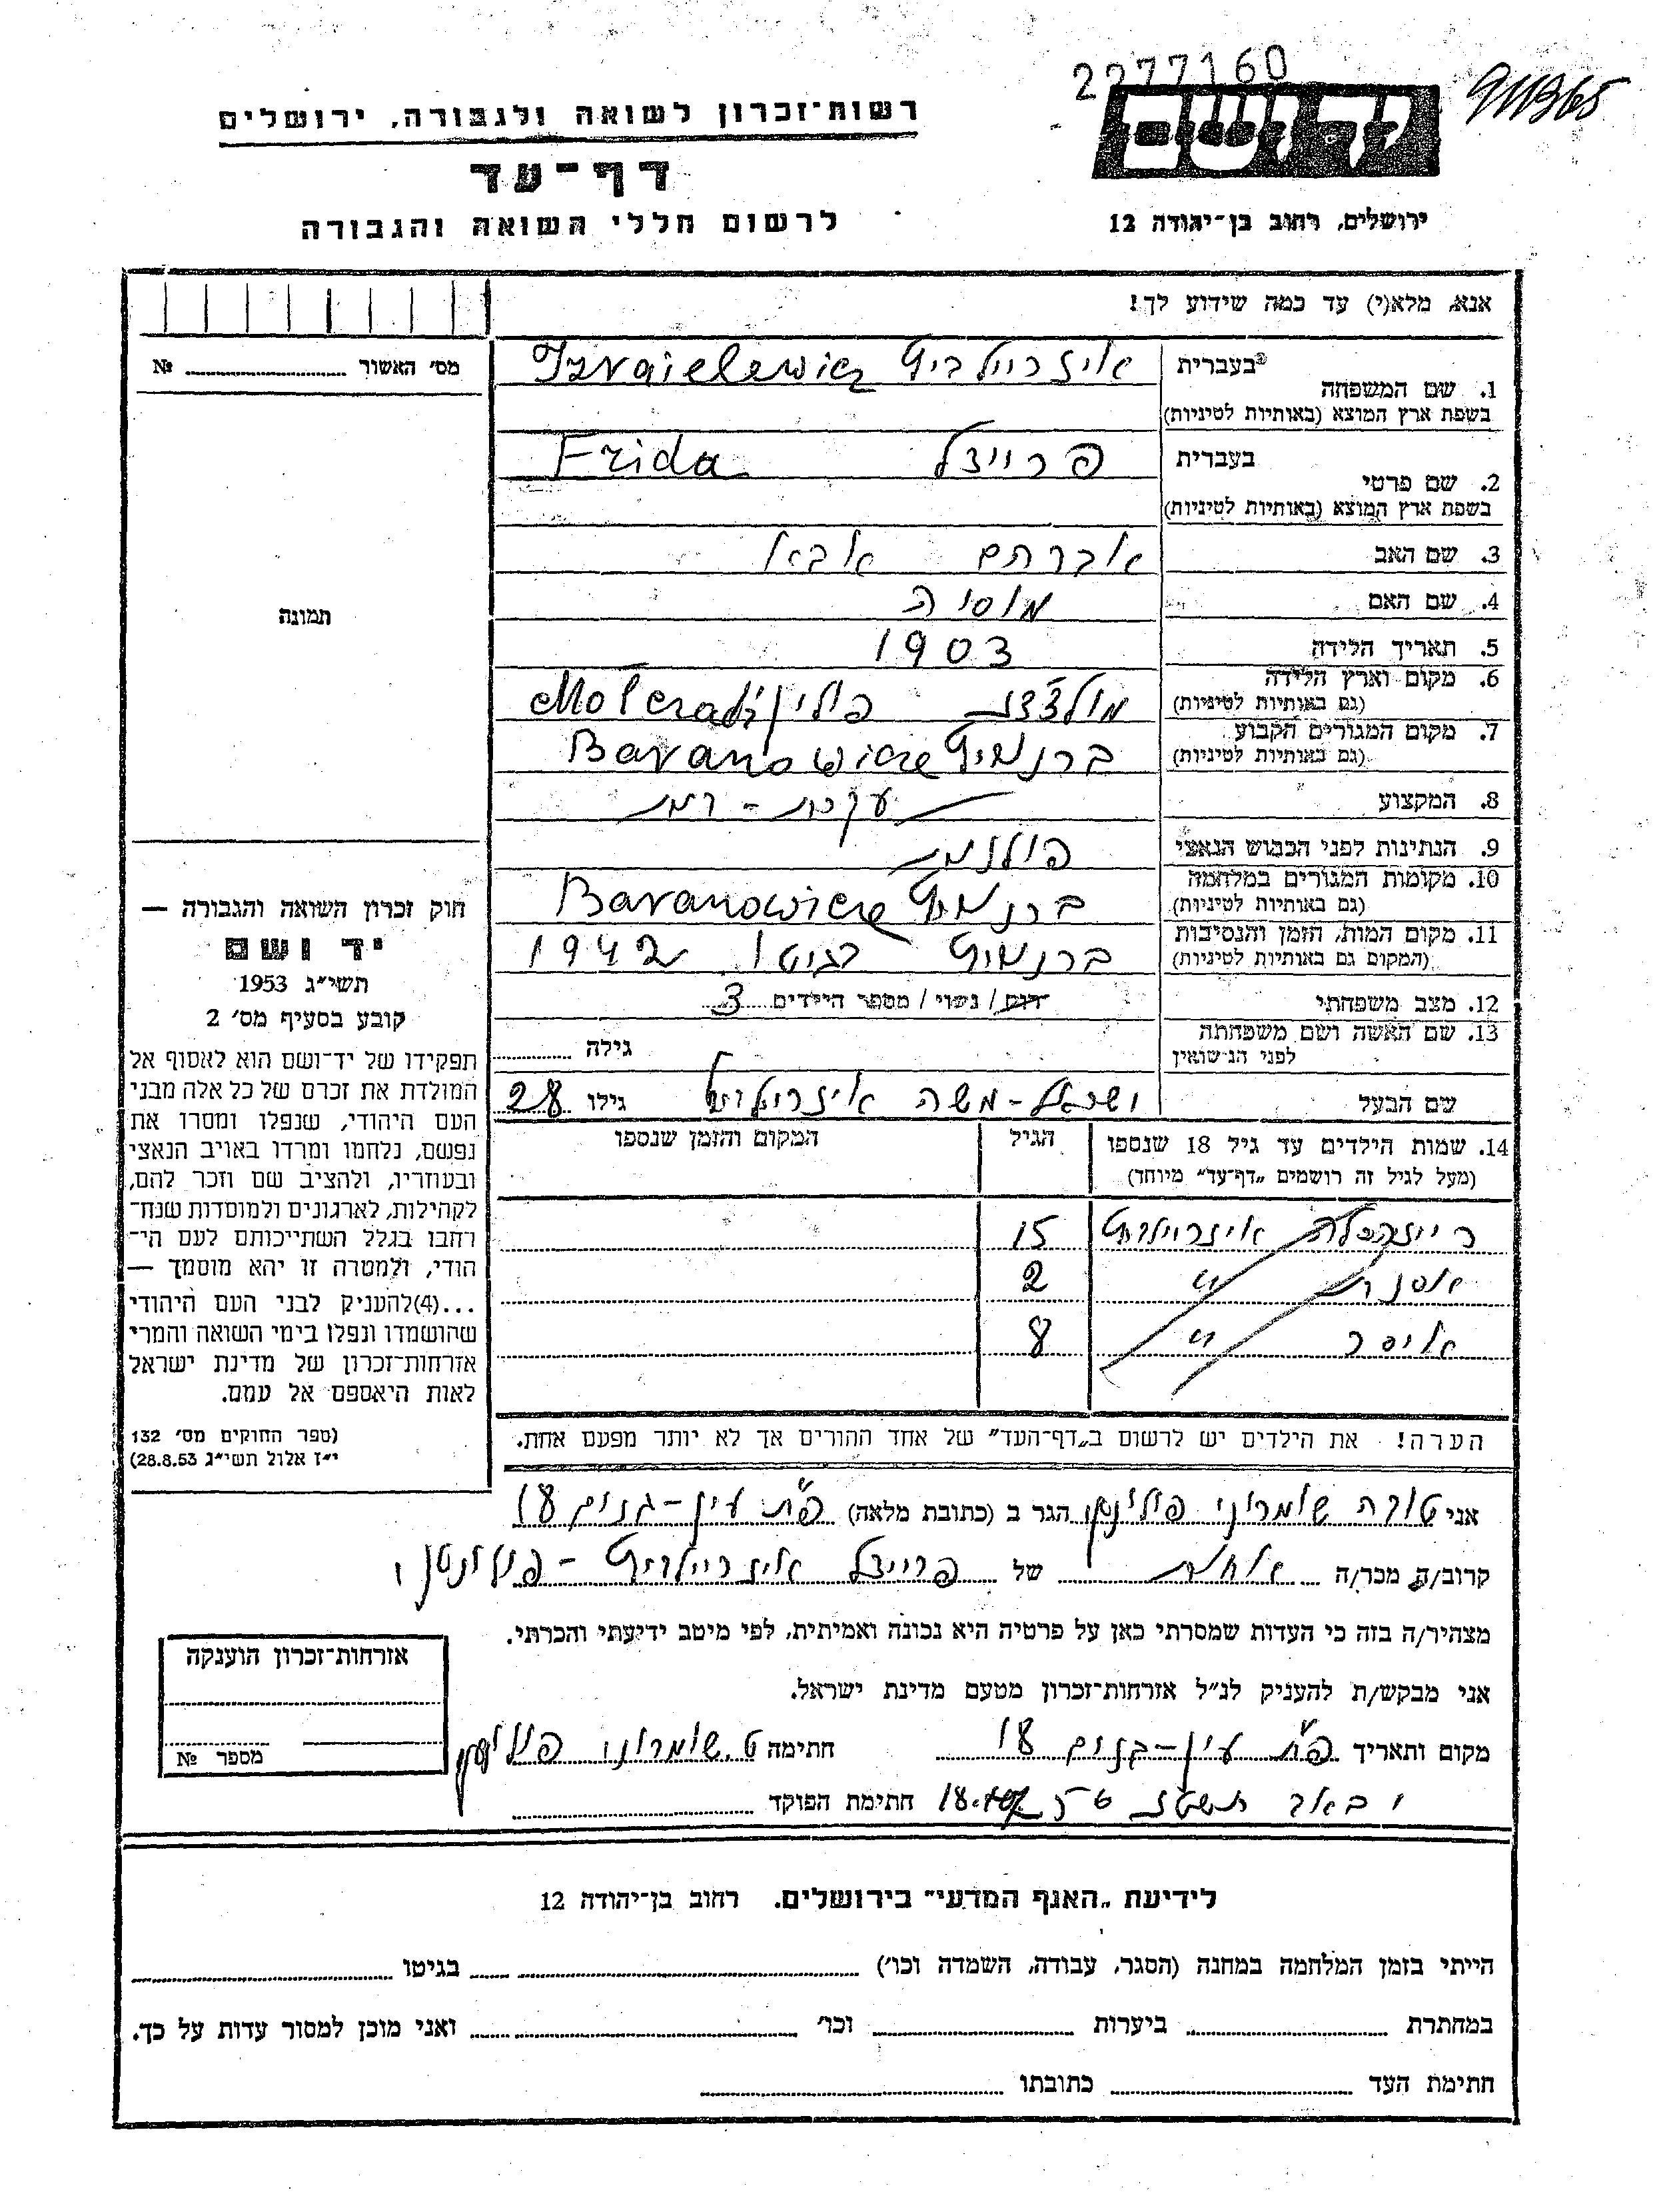 2277160
911365
רשות־זכרון לשואה ולגבורה, ירושלים
יד ושם
דף־עד
לרשום חללי השואה והגבורה
ירושלים, רחוב בן־יהודה 12
אנא, מלא(י) עד כמה שידוע לך!
מס׳ האשור № ........
בעברית
1. שם המשפחה
בשפת ארץ המוצא (באותיות לטיניות)
איזריילביץ Izraielewicz
בעברית
2. שם פרטי
בשפת ארץ המוצא (באותיות לטיניות)
פריידל Frida
3. שם האב אברהם אבא
4. שם האם מוסיה
5. תאריך הלידה 1903
6. מקום וארץ הלידה
(גם באותיות לטיניות)
פולין
7. מקום המגורים הקבוע
(גם באותיות לטיניות)
ברנוביץ Baranowicze
8. המקצוע עקרת-בית
9. הנתינות לפני הכבוש הנאצי פולנית
10. מקומות המגורים במלחמה
(גם באותיות לטיניות)
ברנוביץ Baranowicze
11. מקום המות, הזמן והנסיבות
(המקום גם באותיות לטיניות)
ברנוביץ בגיטו 1942
12. מצב משפחתי רווק / נשוי / מספר הילדים 3
13. שם האשה ושם משפחתה
לפני הנישואין
גילה ........
שם הבעל ישראל-משה איזריילביץ גילו 28
14. שמות הילדים עד גיל 18 שנספו הגיל המקום והזמן שנספו
(מעל לגיל זה רושמים „דף־עד” מיוחד)
איזריילביץ 15
אסנת " 2
" 8
הערה! את הילדים יש לרשום ב„דף־העד” של אחד ההורים אך לא יותר מפעם אחת.
תמונה
חוק זכרון השואה והגבורה —
יד ושם
תשי״ג 1953
קובע בסעיף מס׳ 2
תפקידו של יד־ושם הוא לאסוף אל
המולדת את זכרם של כל אלה מבני
העם היהודי, שנפלו ומסרו את
נפשם, נלחמו ומרדו באויב הנאצי
ובעוזריו, ולהציב שם וזכר להם,
לקהילות, לארגונים ולמוסדות שנח־
רחבו בגלל השתייכותם לעם הי־
הודי, ולמטרה זו יהא מוסמך —
...(4)להעניק לבני העם היהודי
שהושמדו ונפלו בימי השואה והמרי
אזרחות־זכרון של מדינת ישראל
לאות היאספם אל עמם.
(ספר החוקים מס׳ 132
י״ז אלול תשי״ג 28.8.53)
אני טובה שומרוני הגר ב (כתובת מלאה) פ״ת עין-גנים 18
קרוב/ה מכר/ה אחות של פריידל איזריילביץ
מצהיר/ה בזה כי העדות שמסרתי כאן על פרטיה היא נכונה ואמיתית, לפי מיטב ידיעתי והכרתי.
אני מבקש/ת להעניק לנ״ל אזרחות־זכרון מטעם מדינת ישראל.
מקום ותאריך פ״ת עין-גנים 18 חתימה ט. שומרוני
חתימת הפוקד ........
אזרחות־זכרון הוענקה
מספר №
לידיעת „האגף המדעי” בירושלים. רחוב בן־יהודה 12
הייתי בזמן המלחמה במחנה (הסגר, עבודה, השמדה וכו׳) ........ בגיטו ........
במחתרת ........ ביערות ........ וכו׳ ........ ואני מוכן למסור עדות על כך.
חתימת העד ........ כתובתו ........